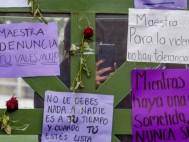 MAESTRA
DENUNCIA
TU VALES
Maestra
Para la
no hay tolerancia
NO LE DEBES
NADA A NADIE
ES A TU TIEMPO
Y CUANDO TÚ
ESTÉS LISTA
Mientras
haya una
sometida,
NUNCA